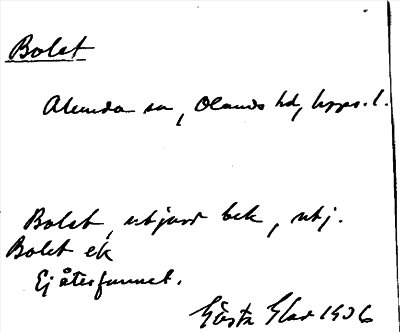 Bolet
Alunda sn, Olands hd, Upps. l.
Bolet, utjord bek, utj.
Bolet ek
Ej återfunnet.
Gösta Elas 1936